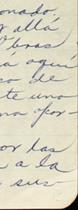 onado.
y allá
Obras
a aquí
so de
te una
na opor-
or las
a la
sus